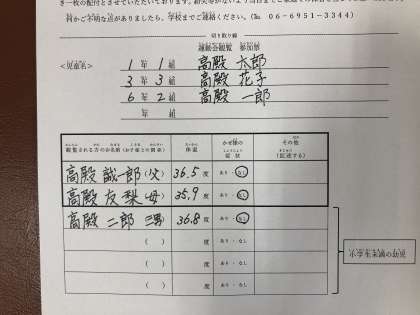 き一枚の配付とさせていただいております。
何かご不明な点がありましたら、学校までご連絡ください。(℡ 06-6951-3344)
切り取り線
運動会観覧 参加票
<児童名> 1年 1組 高殿 太郎
3年 3組 高殿 花子
6年 2組 高殿 一郎
年 組
観覧される方のお名前(お子様との関係) 体温 かぜ様の症状 その他(記述する)
高殿 誠一郎(父) 36.5度 あり・なし
高殿 友梨(母) 35.9度 あり・なし
高殿 二郎 三男 36.8度 あり・なし
( ) 度 あり・なし
( ) 度 あり・なし
( ) 度 あり・なし
小学生未満の幼児